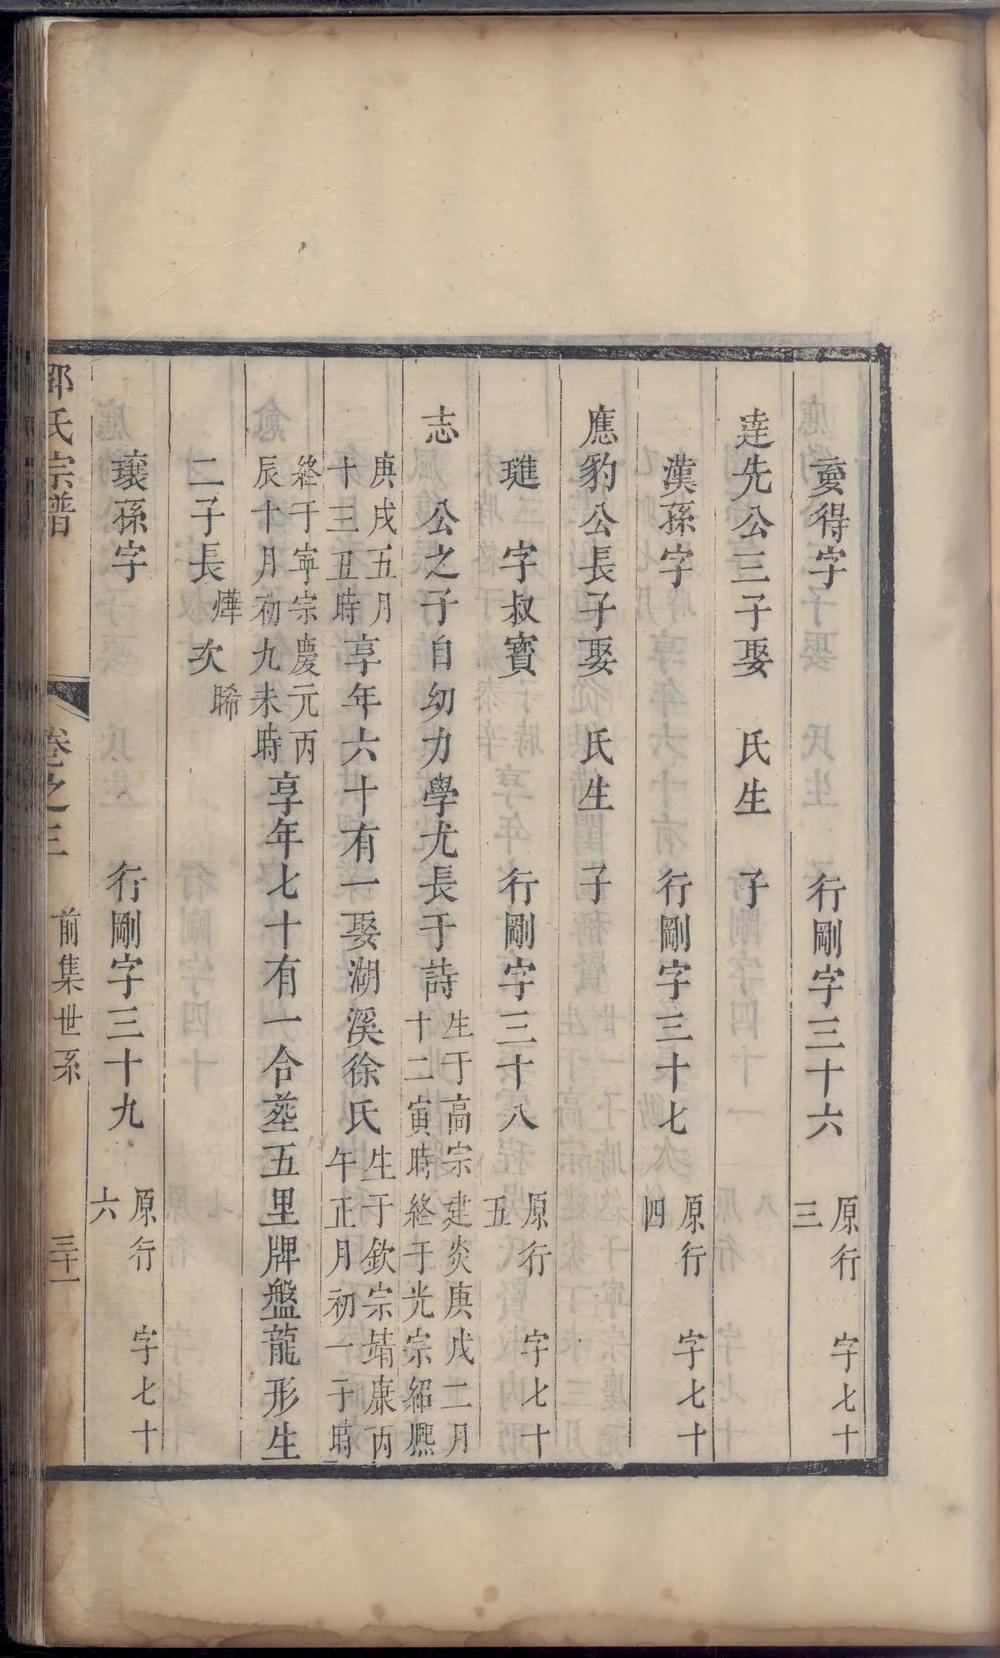 得字　行剛字三十六　原行　字七十三
達先公三子娶　氏生　子
漢孫字　行剛字三十七　原行　字七十四
應豹公長子娶　氏生　子
璡　字叔寳　行剛字三十八　原行　字七十五
志　公之子自幼力學尤長于詩生于高宗建炎庚戌二月十二寅時終于光宗紹熈
庚戌五月十三丑時享年六十有一娶湖溪徐氏生于欽宗靖康丙午正月初一子時
終于寧宗慶元丙辰十月初九未時享年七十有一合塟五里牌盤龍形生
二子長燁次晞
瓌孫字　行剛字三十九　原行　字七十六
氏宗譜　卷之三　前集世系　三十一